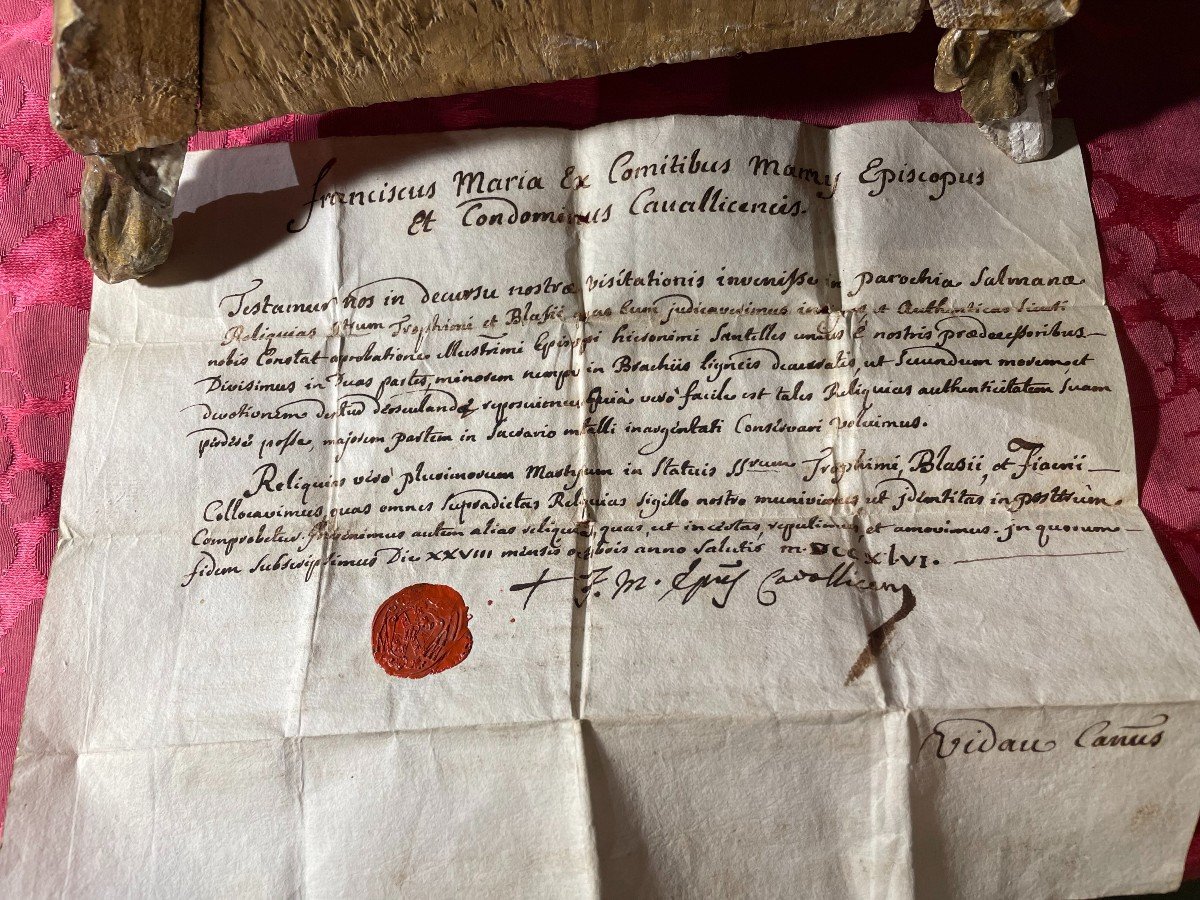 Franciscus Maria Ex Comitibus Episcopus
et Condominus Cavallicencis.
Testamur nos in decursu nostræ visitationis invenisse in parochia Salmanæ
Reliquias SSrum Trophimi et Blasii, quas cum judicaverimus et Authenticas sicuti
nobis Constat aprobatione illustrimi Episcopi hieronimi Santelles unius è nostris prædecessoribus
Divisimus in Duas partes, minorem nempe in Brachiis ligneis deauratis, ut Secundum morem, et
devotionem reposuimus, quia verò facile est tales Reliquias authenticitatem Suam
perdere posse, majorem partem in Sacrario inargentati Conservari Voluimus.
Reliquias verò plurimorum Martyrum in Statuis SSrum Trophimi, Blasii, et
Collocavimus, quas omnes Supradictas Reliquias Sigillo nostro munivimus ut jdentitas in posterùm
Comprobetur. jnvenimus autem alias reliquias, quas, ut incertas, repulimus, et amovimus. jn quorum
fidem Subscripsimus Die XXVIII mensis anno Salutis M.DCCXLVI.
+ F. M. Epûs Cavallicen
Vidau Canûs